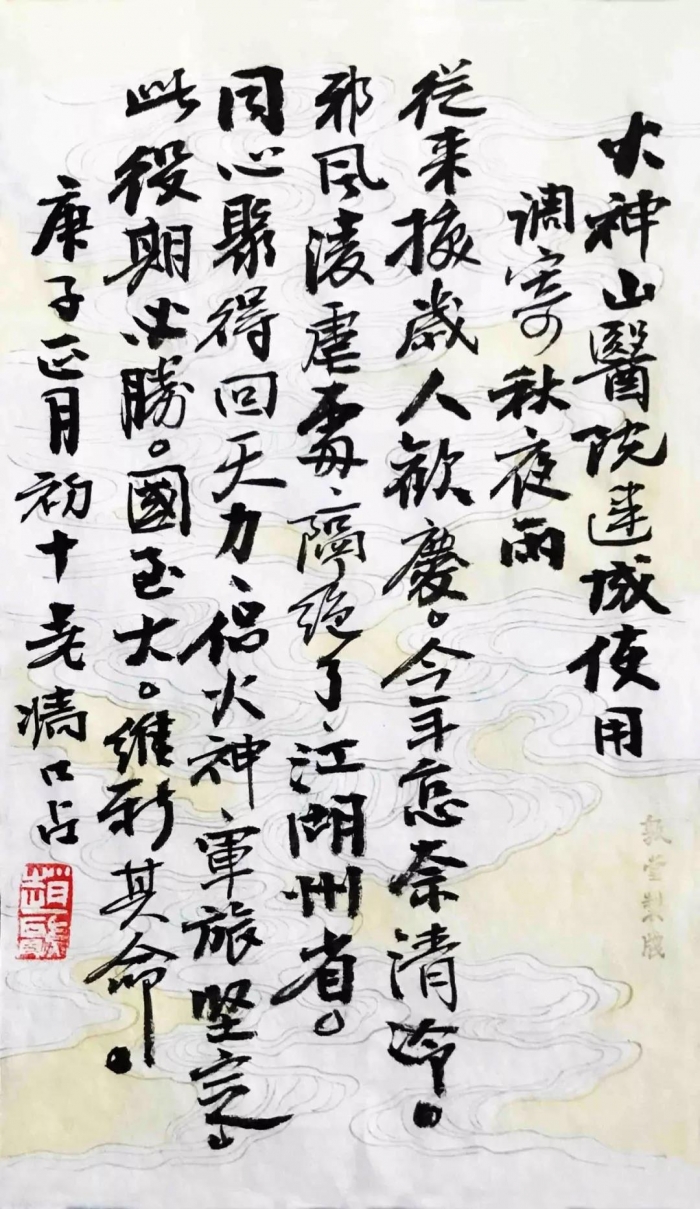 火神山醫院建成使用
調寄秋夜雨
從来換歲人歡慶。今年怎奈清冷。
邪风凌虐處、隔绝了、江湖州省。
同心聚得回天力、侣火神、軍旅堅定。
此役期必勝。國至大。維新其命。
庚子正月初十 口占
堂製牋